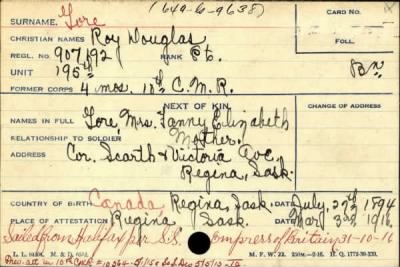 (649-G-9638)
SURNAME. Gore
CARD NO.
CHRISTIAN NAMES Roy Douglas
FOLL.
REGL. NO. 907192 RANK Pte.
UNIT 195th Bn
FORMER CORPS 4 mos. 10th C.M.R.
NEXT OF KIN
CHANGE OF ADDRESS
NAMES IN FULL Gore, Mrs. Fanny Elizabeth
RELATIONSHIP TO SOLDIER Mother.
ADDRESS Cor. Scarth & Victoria Ave.
Regina, Sask.
COUNTRY OF BIRTH Canada Regina, Sask July 29th 1894
PLACE OF ATTESTATION Regina Sask. Mar. 3rd 1916
Sailed from Halifax per S.S. Empress of Britain 31-10-16
M. F. W. 22.